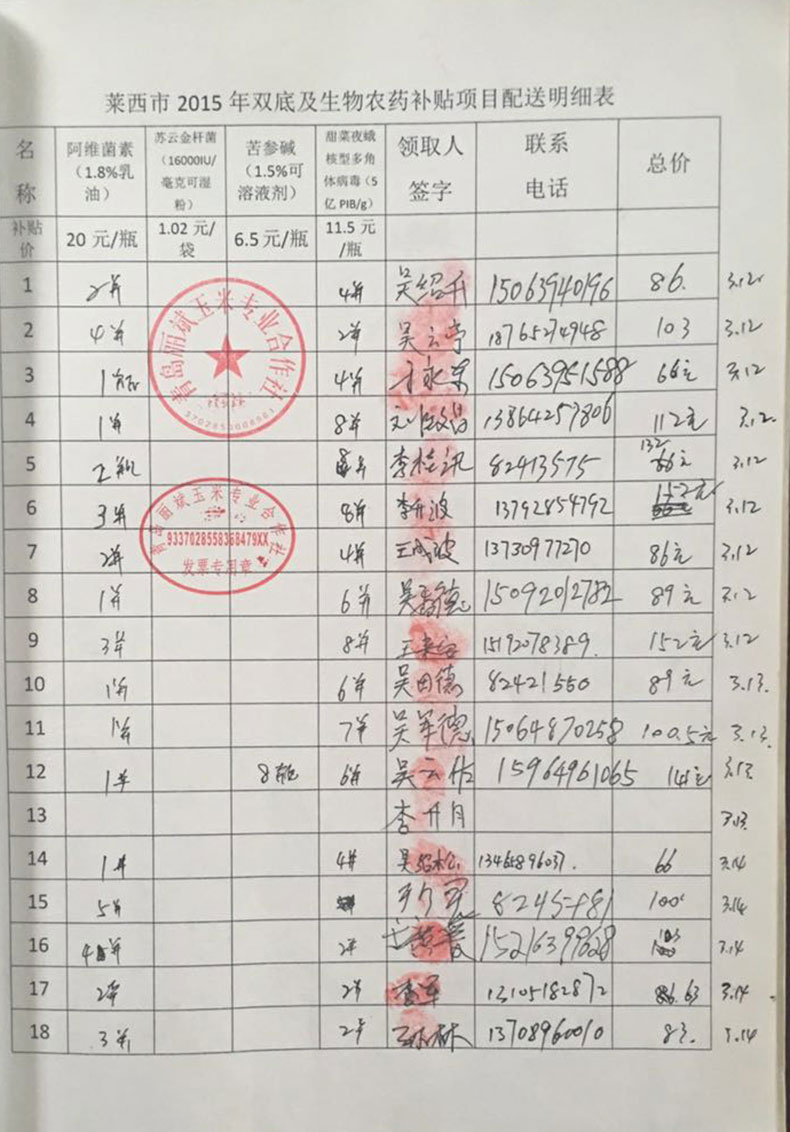 莱西市 2015 年双底及生物农药补贴项目配送明细表
名称 阿维菌素（1.8%乳油） 苏云金杆菌（16000IU/毫克可湿粉） 苦参碱（1.5%可溶液剂） 甜菜夜蛾核型多角体病毒（5亿 PIB/g） 领取人签字 联系电话 总价
补贴价 20 元/瓶 1.02 元/袋 6.5 元/瓶 11.5 元/瓶
1 2并 4并 吴绍升 15063940196 86. 3.12
2 4并 2并 吴云亭 18765274948 103 3.12
3 1瓶 4并 15063951588 66元 3.12
4 1并 8并 13864257806 112元 3.12
5 李桂讯 82413575 132 3.12
6 3并 8并 李升波 13792854792 152元 3.12
7 2并 4并 王成波 13730977270 86元 3.12
8 1并 6并 15092012782 89元 3.12
9 3并 8并 15192078389. 152元 3.12
10 1并 6并 吴田德 82421550 89元 3.13.
11 1并 7并 吴军德 15064870258 100.5元 3.13.
12 1并 8瓶 6并 吴云佑 15964961065 3.13
13 李升月 3.13
14 1并 4并 吴绍松 1346896037. 66 3.14
15 5并 100 3.14
16 4并 2并 15216399628 103 3.14
17 2并 2并 李军 13105182872 63 3.14
18 3并 2并 13708960010 83. 3.14
青岛丽斌玉米专业合作社
3702850008963
青岛丽斌玉米专业合作社
9337028558368479XX
发票专用章